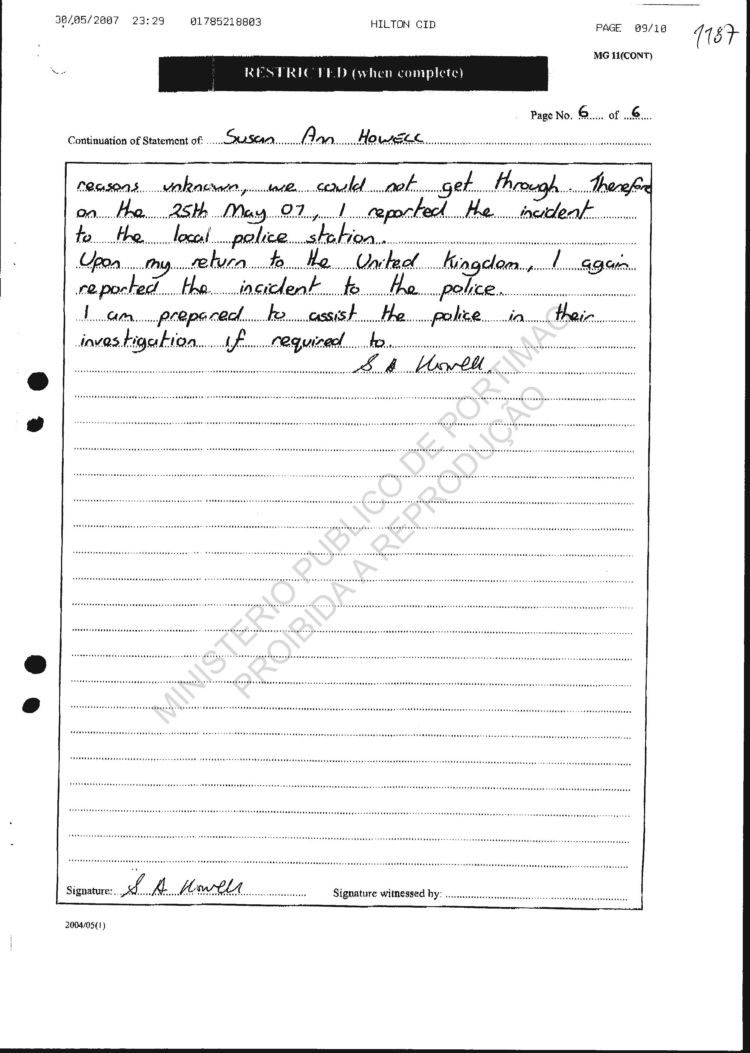 30/05/2007 23:29 01785218803 HILTON CID PAGE 09/10
1187
MG 11(CONT)
RESTRICTED (when complete)
Page No. 6 of 6
Continuation of Statement of: Susan Ann Howell
reasons unknown, we could not get through. Therefore
on the 25th May 07, I reported the incident
to the local police station.
Upon my return to the United Kingdom, I again
reported the incident to the police.
I am prepared to assist the police in their
investigation if required to.
S A Howell
MINISTERIO PUBLICO DE PORTIMAO
PROIBIDA A REPRODUÇÃO
Signature: S A Howell Signature witnessed by:
2004/05(1)